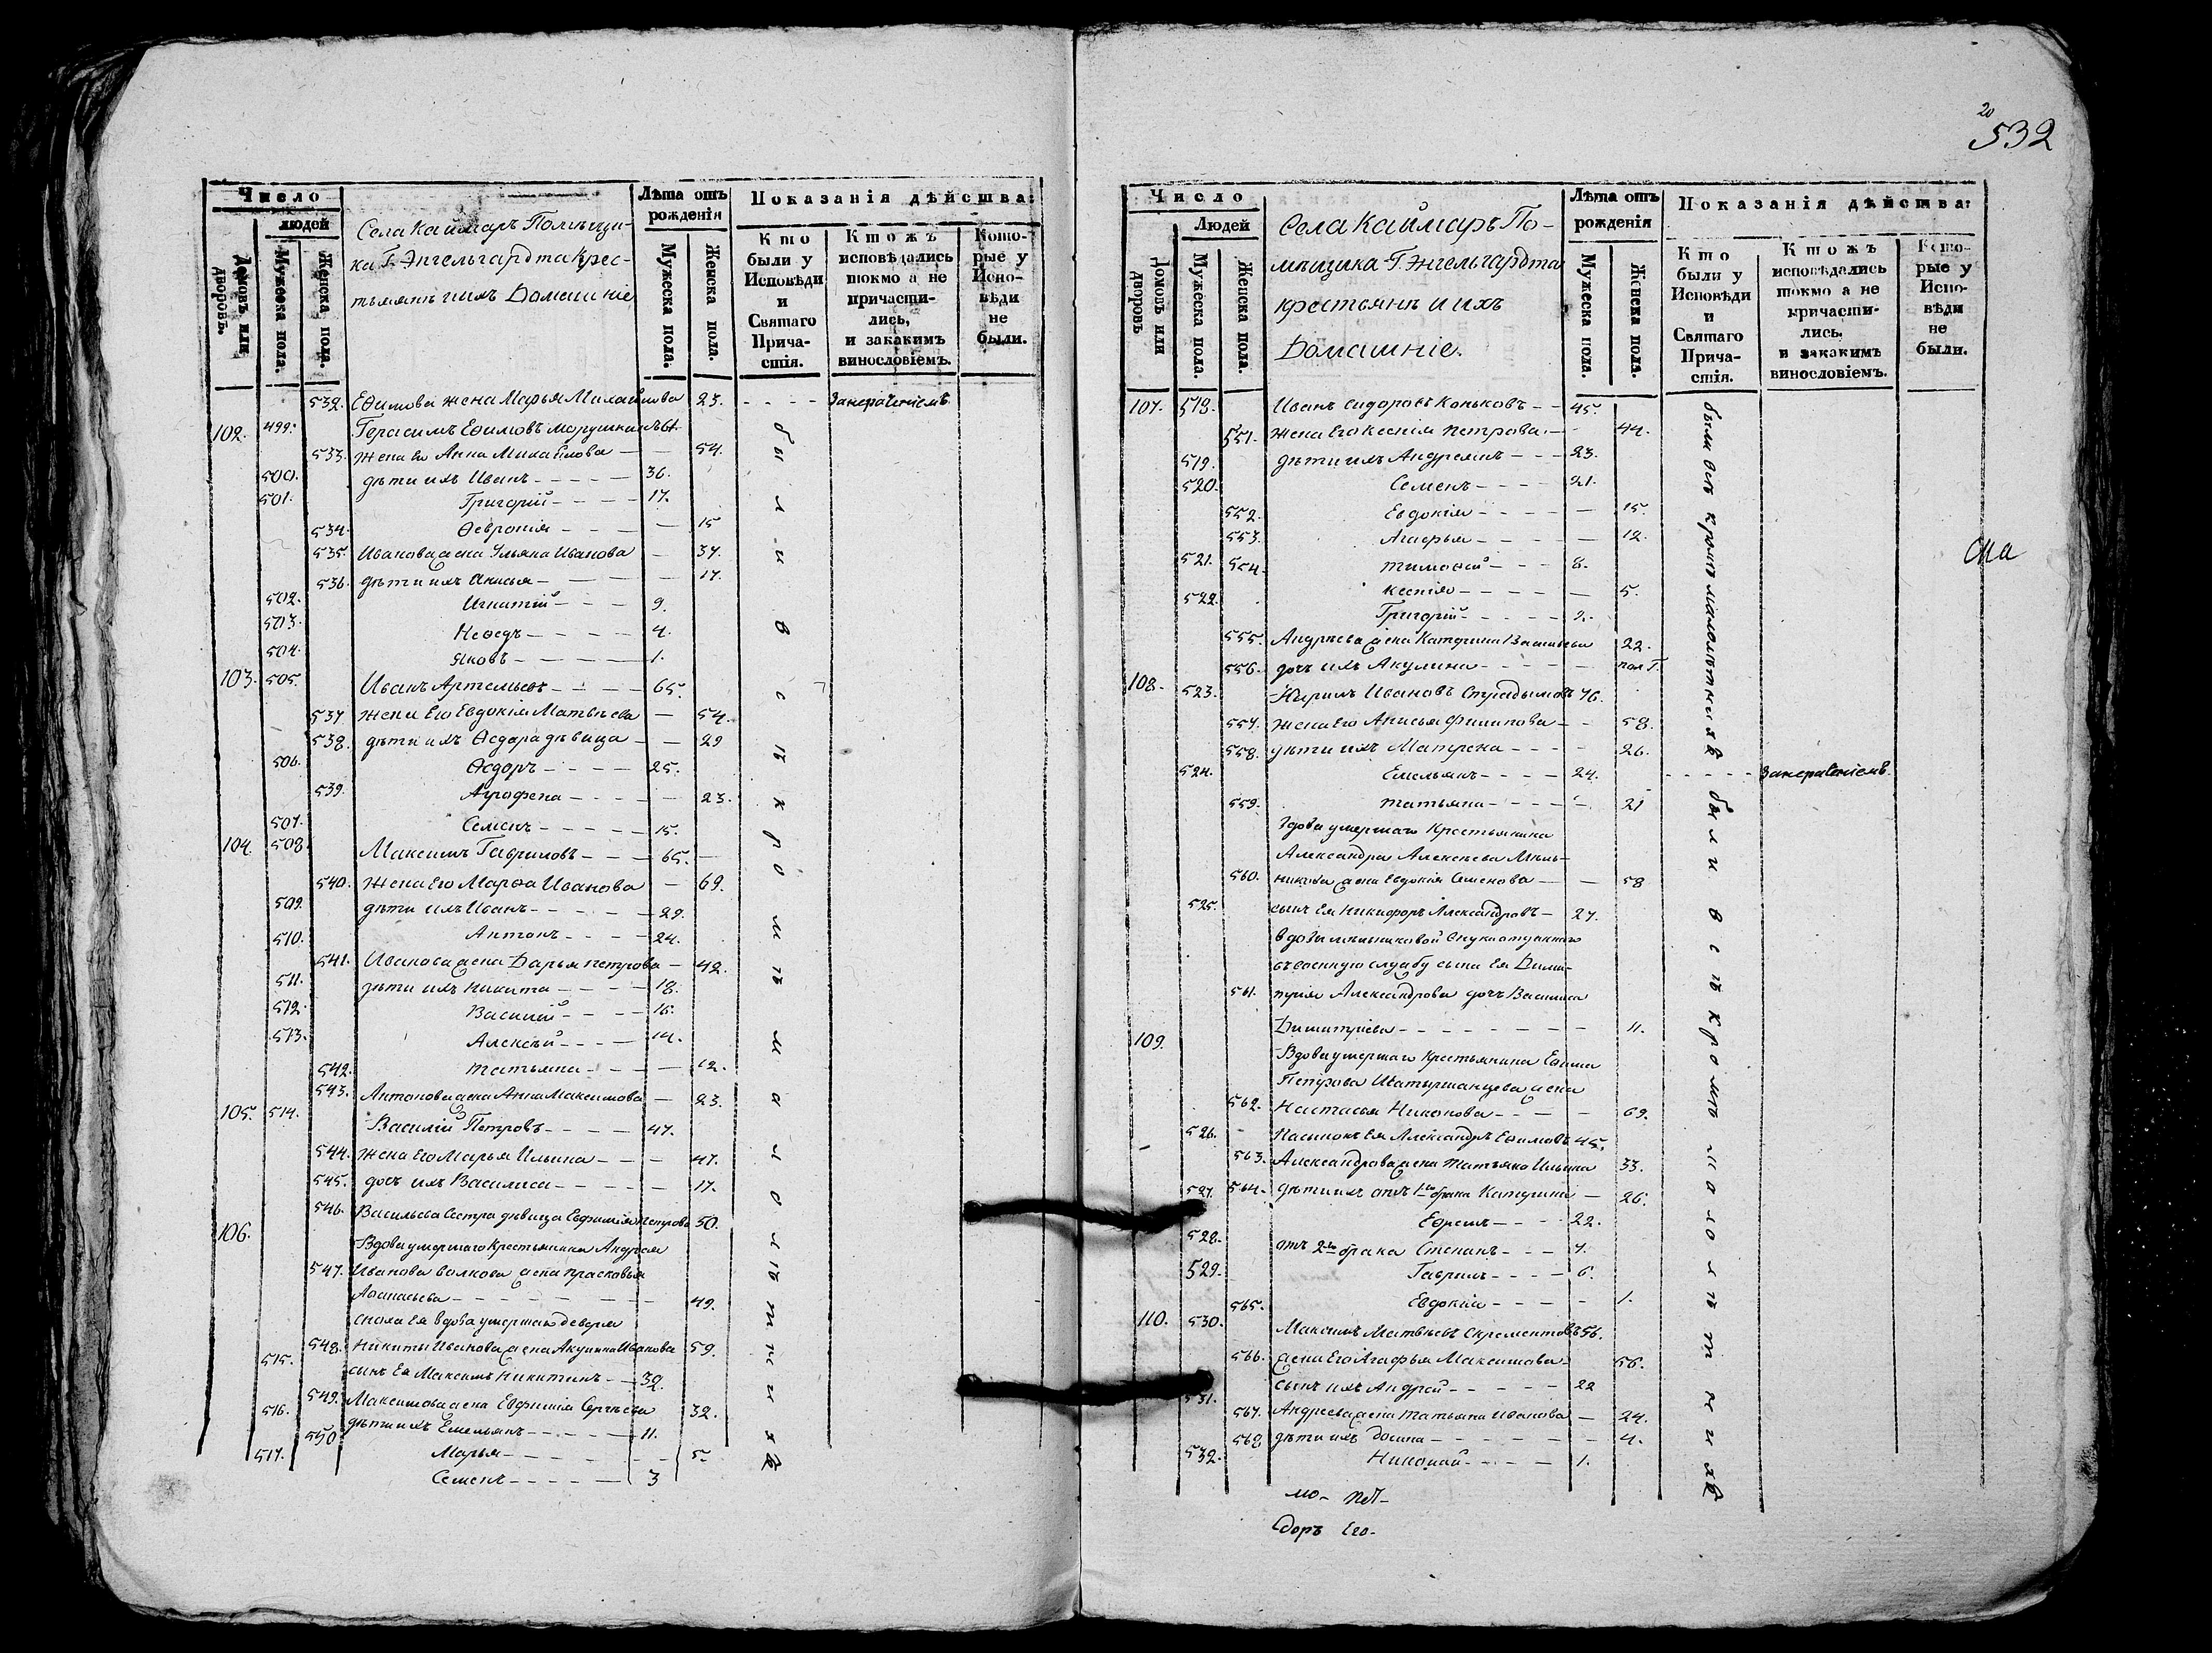 Число
людей
Домовъ или дворовъ.
Мужеска пола.
Женска пола.
Села Каймаръ Помѣщи-
ка Г. Энгельгардта Крес-
тьянъ и ихъ Домашніе
Лѣта отъ рожденія
Мужеска пола.
Женска пола.
Показанія дѣйства:
Кто были у Исповѣди и Святаго Причастія.
Ктожъ исповѣдались токмо а не причастились, и закакимъ винословіемъ.
Которые у Исповѣди не были.
532. Еѳимова жена Марья Михайлова 23. - - - -
102. 499. Герасимъ Еѳимовъ
533. жена Ево Анна Михайлова — — 54.
500. дѣти ихъ Иванъ - - - - 36.
501. Григорій - - - - 17.
534. Ѳевронія - - - — 15
535. Иванова жена Ульяна Иванова — 37.
536. дѣти ихъ Анисья — — — 17.
502. Игнатій - - - 9.
503. Неѳедъ - - - - 4.
504. Яковъ - - - - 1.
103. 505. Иванъ Артемьевъ - - - - 65.
537 жена Его Евдокія Матвѣева — 54.
538. дѣти ихъ Ѳедора дѣвица — 29
506. Ѳедоръ - - - - 25.
539. Агрофена - - - — 23.
507. Семенъ - - - - 15.
104. 508. Максимъ Гавриловъ - - - 65. —
540. жена Его Марѳа Иванова — 69.
509. дѣти ихъ Иванъ - - - - 29.
510. Антонъ - - - - 24.
541. Иванова жена Дарья Петрова — 42.
511. дѣти ихъ Никита - - - - 18.
512. Василій - - - - 16.
513. Алексѣй - - - - 14.
542. Татьяна - - - — 12.
543. Антонова жена Анна Максимова — 23.
105. 514. Василій Петровъ - - - - 47.
544. жена Его Марья Ильина - - - 47.
545. дочь ихъ Василиса - - - - 17.
546. Васильева Сестра дѣвица Евфимія Петрова 50.
106. Вдова умершаго Крестьянина Андрея
547. Иванова Волкова жена Прасковья
Аѳанасьева - - - - - - 49.
сноха Ея вдова умершаго деверя
548. Никиты Иванова жена Акулина Иванова 59.
515. сынъ Ея Максимъ Никитинъ - - 32.
549. Максимова жена Евфимія Сергѣева 32.
516. дѣти ихъ Емельянъ - - - - 11.
550 Марья - - - - - - 5.
517. Семенъ - - - - - 3
были всѣ кромѣ малолѣтнихъ
20
532
Число
Людей
Домовъ или дворовъ
Мужеска пола.
Женска пола.
Села Каймаръ По-
мѣщика Г. Энгельгардта
крестьянъ и ихъ
Домашніе.
Лѣта отъ рожденія
Мужеска пола.
Женска пола.
Показанія дѣйства:
Кто были у Исповѣди и Святаго Причастія.
Ктожъ исповѣдались токмо а не причастились. и закакимъ винословіемъ.
Которые у Исповѣди не были.
107. 518. Иванъ Сидоровъ Коньковъ - - 45.
551. жена Его Ксенія Петрова - - 44.
519. дѣти ихъ Андреянъ - - - 23.
520. Семенъ - - - - 21.
552. Евдокія - - - - — 15.
553. Агафья - - - - — 12.
521. 554. Тимоѳей - - - 8.
522. Ксенія - - - - - — 5.
Григорій - - - - 2.
555. Андреева жена Катерина Васильева 22.
556. дочь ихъ Акулина - - - - - пол Г.
108. 523. Кирилъ Ивановъ 76.
557. жена Его Анисья Филипова - - 58.
558. дѣти ихъ Матрена - - - - 26.
524. Емельянъ - - - - 24. - - - - -
559. Татьяна - - - - - 21
Вдова умершаго Крестьянина
Александра Алексѣева Мѣль-
560. никова жена Евдокія Семенова — — 58
525. сынъ Ея Никифоръ Александровъ — 27.
вдовы мѣльниковой Снухи отданнаго
въ военную службу сына Ея Дими-
561. трія Александрова дочь Василиса
Димитріева - - - - - - - 11.
109. Вдова умершаго Крестьянина Еѳима
Петрова жена
562. Настасья Никонова - - - — 69.
526. Пасынокъ Ея Александръ Еѳимовъ 45.
563. Александрова жена Татьяна Ильина 33.
527. 564. дѣти ихъ отъ 1го брака Катерина — 26.
Ефремъ - - - 22.
528. отъ 2го брака Степанъ - - - 7.
529. Гаврилъ - - - - 6.
565. Евдокія - - - - - 1.
110. 530. Максимъ Матвѣевъ Скрементовъ 56.
566. жена Его Агафья Максимова - 56.
531. сынъ ихъ Андрей - - - - - 22
567. Андреева жена Татьяна Иванова — 24.
568 дѣти ихъ Домна - - - - - - 4.
532. Николай - - - - 1.
были всѣ кромѣ малолѣтнихъ
были всѣ кромѣ малолѣтнихъ
мо- пет-
доръ Его-